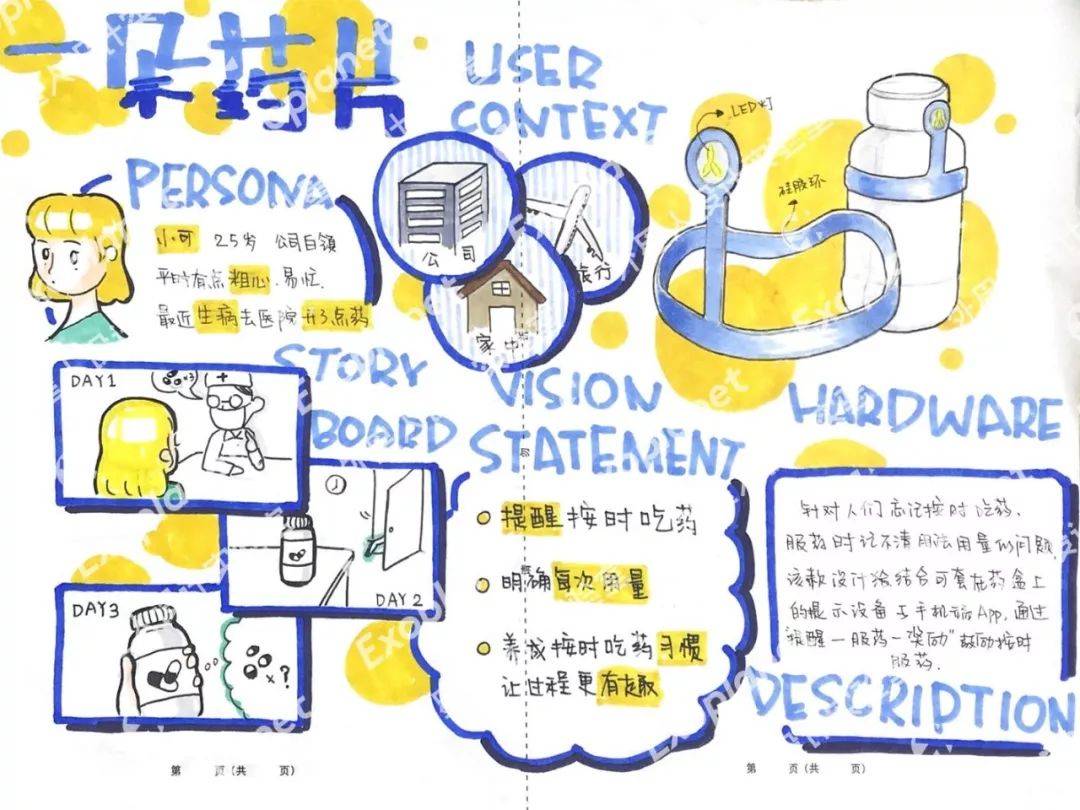 一朵药片
PERSONA
小可 25岁 公司白领
平时有点粗心、易忙.
最近生病去医院开了点药
USER
CONTEXT
公司
旅行
家中
LED灯
硅胶环
STORY
BOARD
DAY1
×3
DAY2
DAY3
×?
VISION
STATEMENT
提醒按时吃药
明确每次用量
养成按时吃药习惯
让过程更有趣
HARDWARE
针对人们忘记按时吃药.
服药时记不清用法用量的问题
该款设计将结合可套在药盒上
的提示设备与手机端App,通过
"提醒—服药—奖励"鼓励按时
服药.
DESCRIPTION
第 页(共 页)
第 页(共 页)
Exoplanet